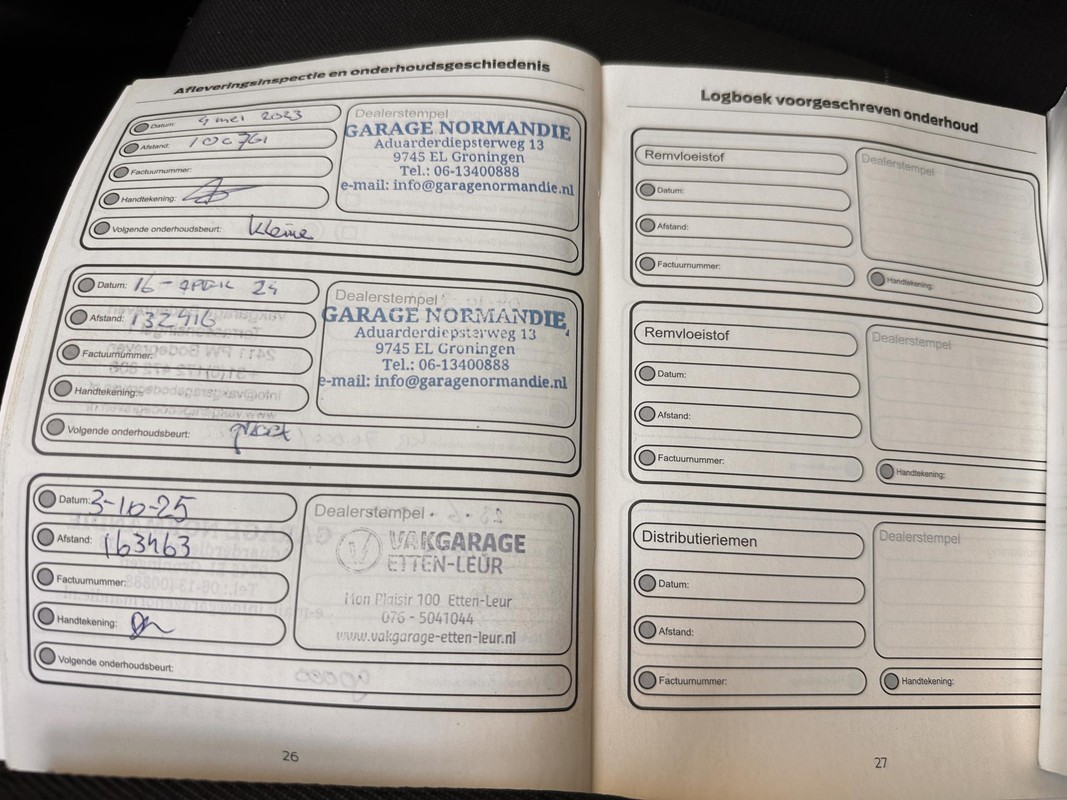 Afleveringsinspectie en onderhoudsgeschiedenis
Datum: 4 mei 2023
Afstand:
Factuurnummer:
Handtekening:
Volgende onderhoudsbeurt: kleine
Dealerstempel
GARAGE NORMANDIE
Aduarderdiepsterweg 13
9745 EL Groningen
Tel.: 06-13400888
e-mail: info@garagenormandie.nl
Datum: 16 - APRIL 24
Afstand: 132416
Factuurnummer:
Handtekening:
Volgende onderhoudsbeurt: groot
Dealerstempel
GARAGE NORMANDIE
Aduarderdiepsterweg 13
9745 EL Groningen
Tel.: 06-13400888
e-mail: info@garagenormandie.nl
Datum: 3-10-25
Afstand: 163463
Factuurnummer:
Handtekening:
Volgende onderhoudsbeurt:
Dealerstempel
VAKGARAGE
ETTEN-LEUR
Mon Plaisir 100 Etten-Leur
076 - 5041044
www.vakgarage-etten-leur.nl
26
Logboek voorgeschreven onderhoud
Remvloeistof
Datum:
Afstand:
Factuurnummer:
Dealerstempel
Handtekening:
Remvloeistof
Datum:
Afstand:
Factuurnummer:
Dealerstempel
Handtekening:
Distributieriemen
Datum:
Afstand:
Factuurnummer:
Dealerstempel
Handtekening:
27